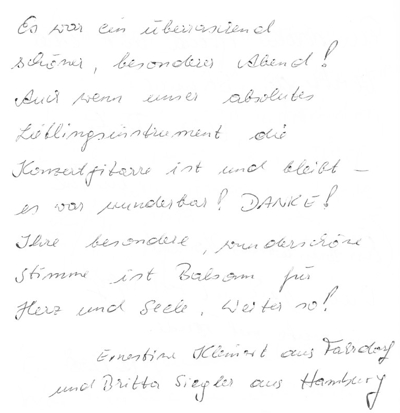 Es war ein überraschend
schöner, besonderer Abend!
Auch wenn unser absolutes
Lieblingsinstrument die
Konzertgitarre ist und bleibt –
es war wunderbar! DANKE!
Ihre besondere, wunderschöne
Stimme ist Balsam für
Herz und Seele, Weiter so!
Ernestine Kleinert aus
und Britta Siegler aus Hamburg